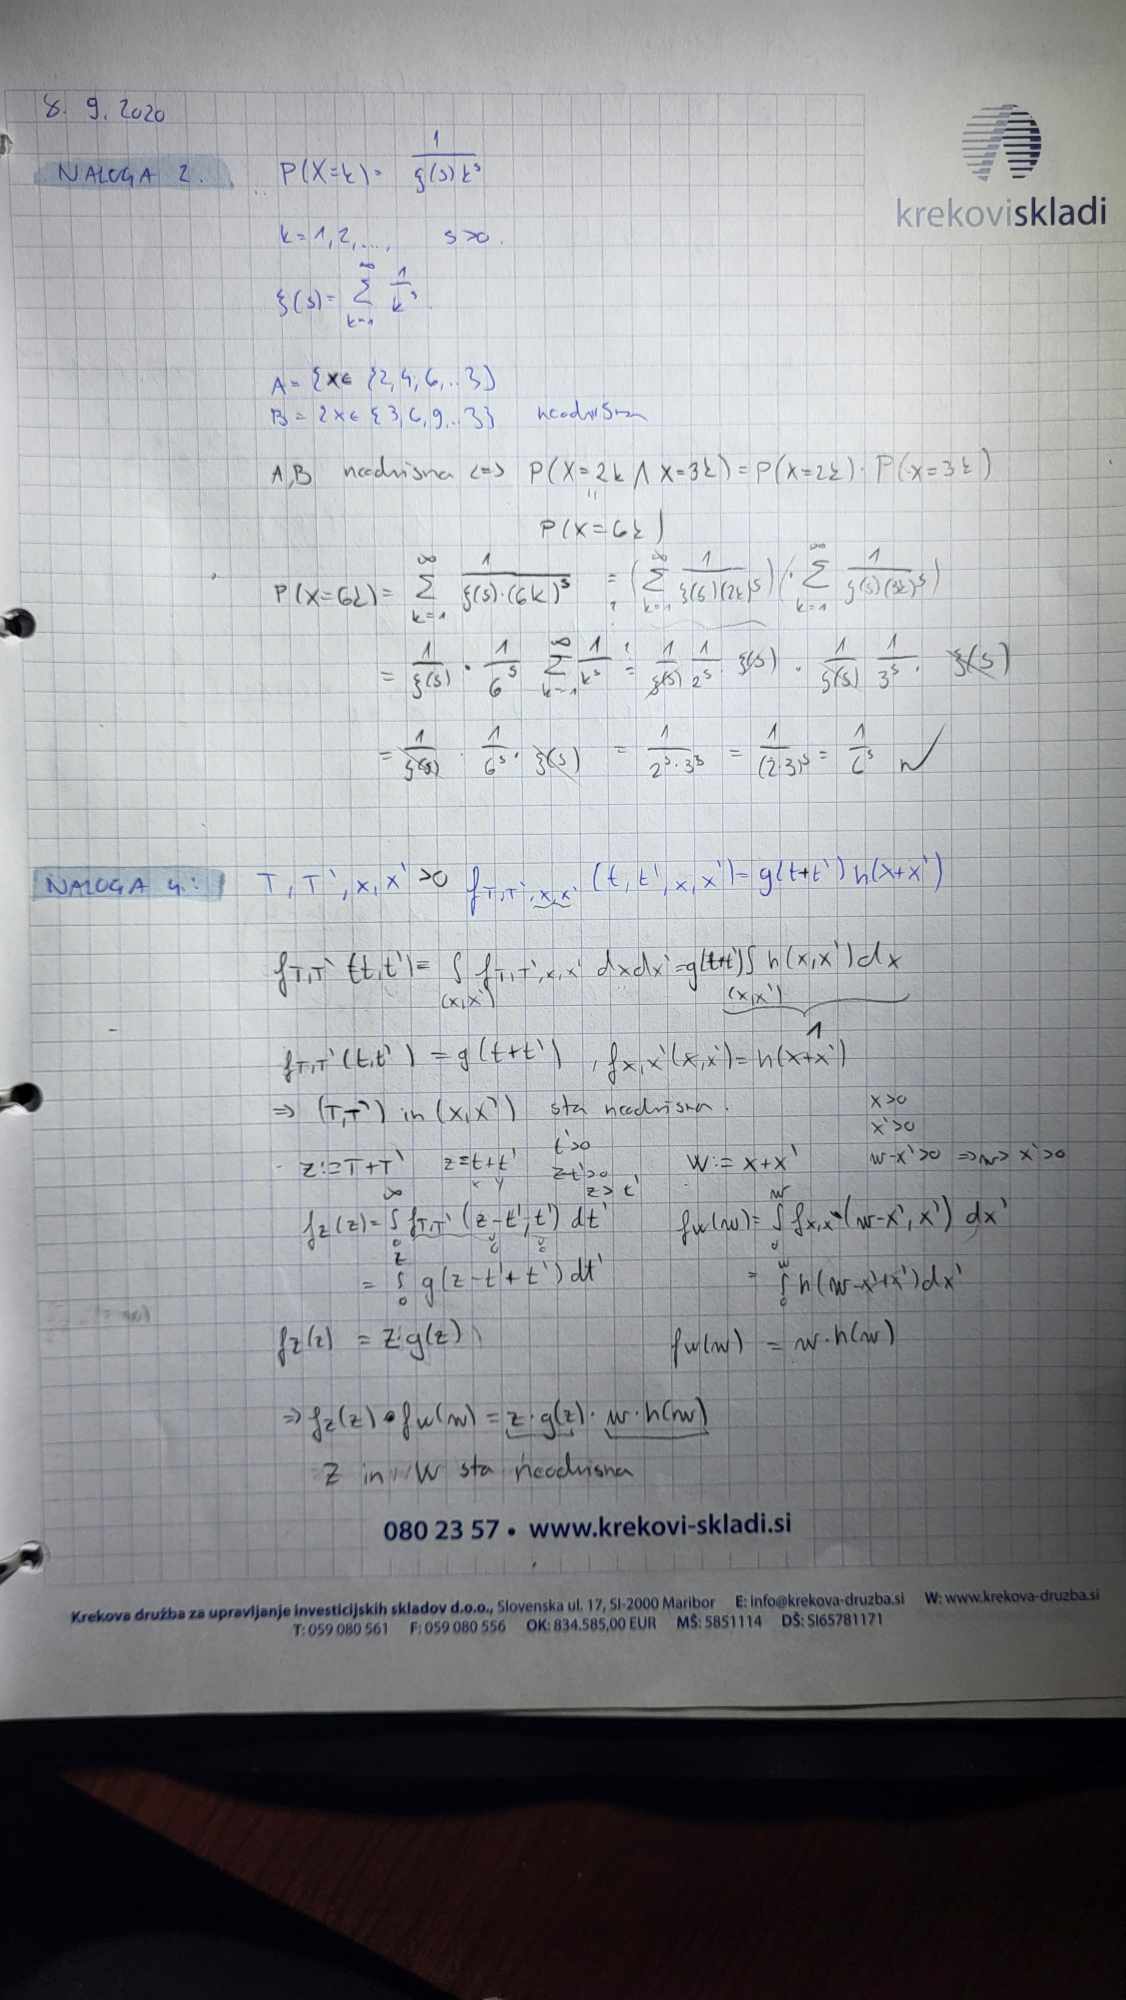 8. 9. 2020
krekoviskladi
NALOGA 2. P(X=k) = 1/(ξ(s)k^s)
k = 1, 2, ..., s>0.
ξ(s) = ∑_{k=1}^∞ 1/k^s
A = {X∈ {2, 4, 6, ..}}
B = {X∈ {3, 6, 9, ..}} neodvisna
A,B neodvisna <=> P(X=2k ∧ X=3k) = P(X=2k) · P(X=3k)
P(X=6k)
P(X=6k) = ∑_{k=1}^∞ 1/(ξ(s)·(6k)^s) =? (∑_{k=1}^∞ 1/(ξ(s)(2k)^s)) (· ∑_{k=1}^∞ 1/(ξ(s)(3k)^s))
= 1/ξ(s) · 1/6^s ∑_{k=1}^∞ 1/k^s =? 1/ξ(s) 1/2^s · ξ(s) · 1/ξ(s) 1/3^s · ξ(s)
= 1/ξ(s) · 1/6^s · ξ(s) = 1/(2^s · 3^s) = 1/(2·3)^s = 1/6^s ✓
NALOGA 4.: T, T', X, X' >0 f_{T,T',X,X'} (t, t', x, x') = g(t+t') h(x+x')
f_{T,T'}(t,t') = ∫_{(x,x')} f_{T,T',X,X'} dxdx' = g(t+t') ∫_{(x,x')} h(x,x') dx
1
f_{T,T'}(t,t') = g(t+t') , f_{X,X'}(x,x') = h(x+x')
=> (T,T') in (X,X') sta neodvisna. x>0
x'>0
t'>0
Z := T+T' z=t+t' z-t'>0 W := X+X' w-x'>0 => w > x' >0
x y z > t'
f_Z(z) = ∫_0^∞ f_{T,T'} (z-t', t') dt' f_W(w) = ∫_0^w f_{X,X'} (w-x', x') dx'
= ∫_0^z g(z-t'+t') dt' = ∫_0^w h(w-x'+x') dx'
f_Z(z) = z·g(z) f_W(w) = w·h(w)
=> f_Z(z) · f_W(w) = z·g(z) · w·h(w)
Z in W sta neodvisna
080 23 57 • www.krekovi-skladi.si
Krekova družba za upravljanje investicijskih skladov d.o.o., Slovenska ul. 17, SI-2000 Maribor E: info@krekova-druzba.si W: www.krekova-druzba.si
T: 059 080 561 F: 059 080 556 OK: 834.585,00 EUR MŠ: 5851114 DŠ: SI65781171